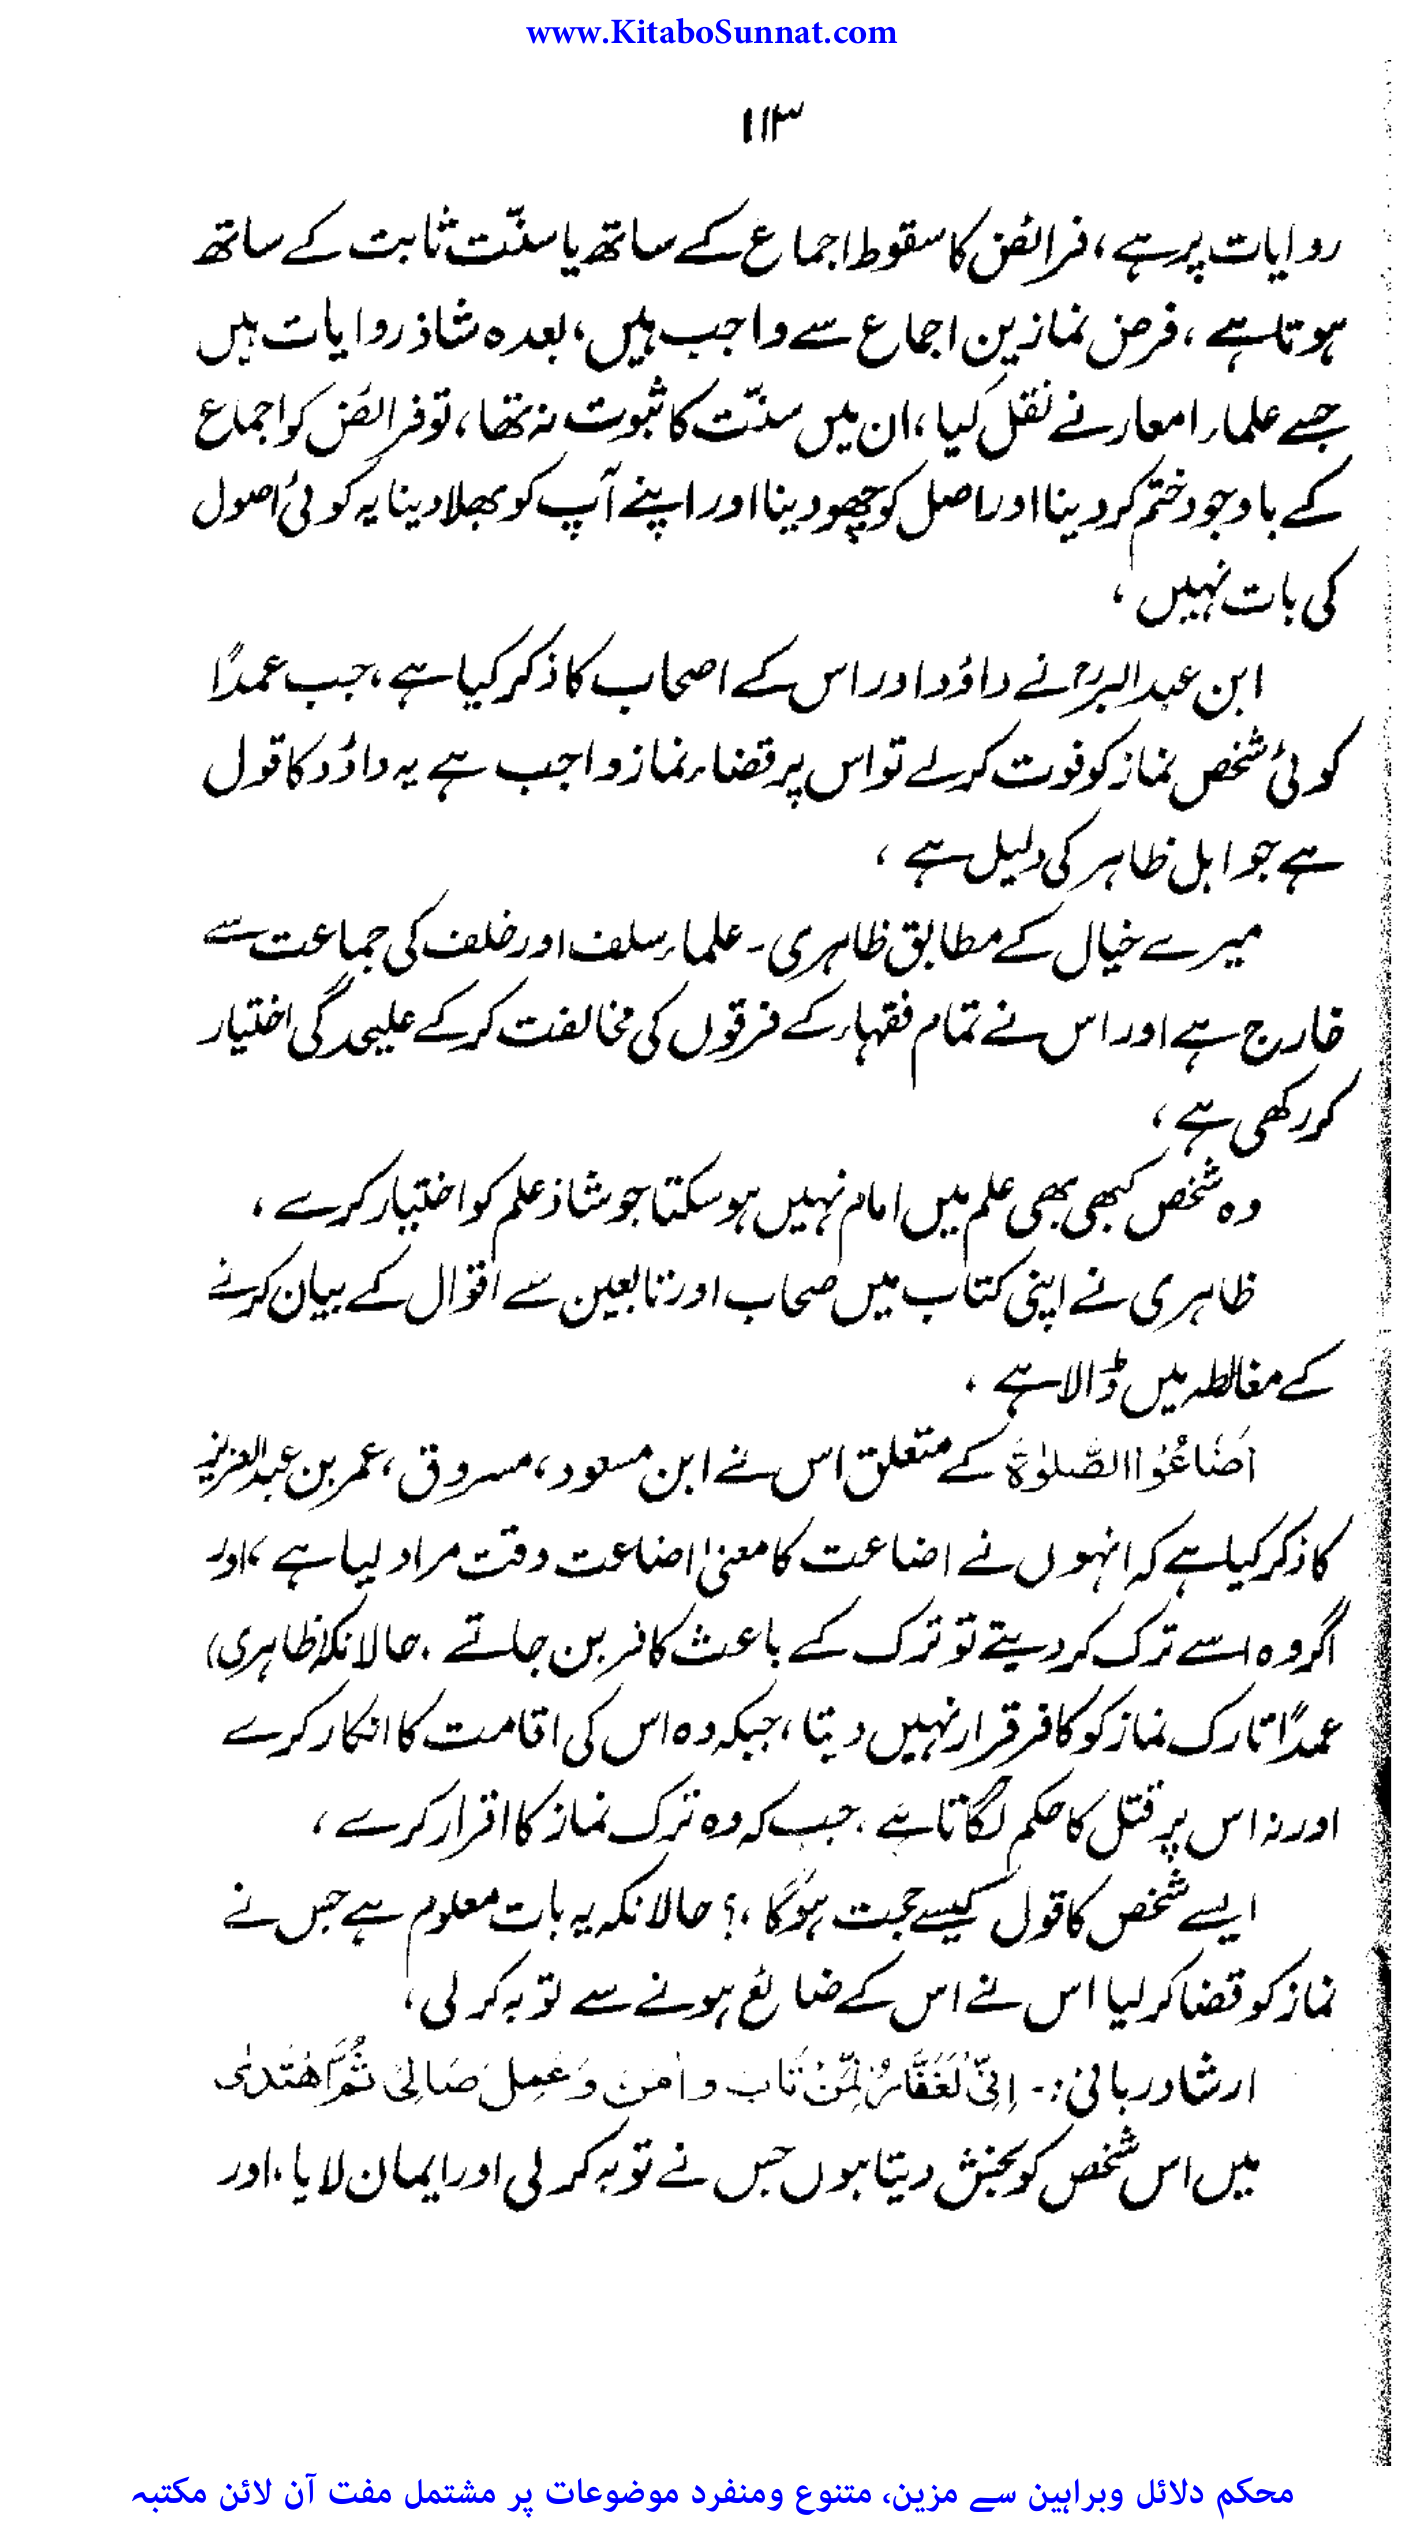 www.KitaboSunnat.com
۱۱۳
روایات پر ہے، فرائض کا سقوط اجماع کے ساتھ یا سنّت ثابت کے ساتھ
ہوتا ہے، فرض نمازیں اجماع سے واجب ہیں، بعدہ شاذ روایات ہیں
جسے علماء امصار نے نقل کیا، ان میں سنّت کا ثبوت نہ تھا، تو فرائض کو اجماع
کے باوجود ختم کر دینا اور اصل کو چھو دینا اور اپنے آپ کو بھلا دینا یہ کوئی اصول
کی بات نہیں،
ابن عبدالبرؒ نے داؤد اور اس کے اصحاب کا ذکر کیا ہے، جب عمداً
کوئی شخص نماز کو فوت کر لے تو اس پر قضاء نماز واجب ہے یہ داؤد کا قول
ہے جو اہل ظاہر کی دلیل ہے،
میرے خیال کے مطابق ظاہری۔ علماء سلف اور خلف کی جماعت سے
خارج ہے اور اس نے تمام فقہاء کے فرقوں کی مخالفت کر کے علیحدگی اختیار
کر رکھی ہے،
وہ شخص کبھی بھی علم میں امام نہیں ہو سکتا جو شاذ علم کو اختیار کرے،
ظاہری نے اپنی کتاب میں صحاب اور تابعین سے اقوال کے بیان کرنے
کے مغالطہ میں ڈالا ہے۔
اَضَاعُوا الصَّلوٰةَ کے متعلق اس نے ابن مسعود، مسروق، عمر بن عبدالعزیز
کا ذکر کیا ہے کہ انہوں نے اضاعت کا معنیٰ اضاعت وقت مراد لیا ہے، اور
اگر وہ اسے ترک کر دیتے تو ترک کے باعث کافر بن جاتے۔ حالانکہ ظاہری)
عمداً تارک نماز کو کافر قرار نہیں دیتا، جبکہ وہ اس کی اقامت کا انکار کرے
اور نہ اس پر قتل کا حکم لگاتا ہے، جب کہ وہ ترک نماز کا اقرار کرے،
ایسے شخص کا قول کیسے حجت ہوگا،؟ حالانکہ یہ بات معلوم ہے جس نے
نماز کو قضا کر لیا اس نے اس کے ضائع ہونے سے توبہ کر لی،
ارشاد ربانی:۔ اِنِّیْ لَغَفَّارٌ لِّمَنْ تَابَ وَاٰمَنَ وَعَمِلَ صَالِیْ ثُمَّ اهْتَدٰی
میں اس شخص کو بخش دیتا ہوں جس نے توبہ کر لی اور ایمان لایا۔ اور
محکم دلائل وبراہین سے مزین، متنوع ومنفرد موضوعات پر مشتمل مفت آن لائن مکتبہ